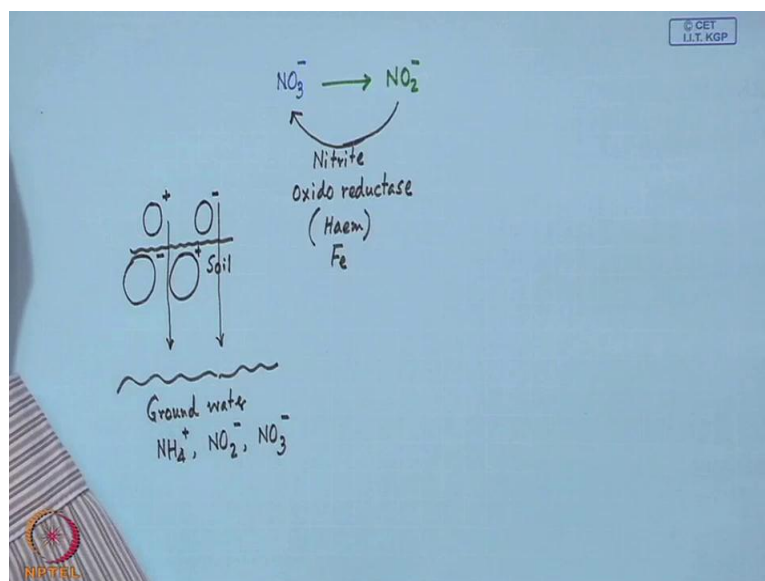 © CET
I.I.T. KGP
NO₃⁻ → NO₂⁻
Nitrite
Oxido reductase
(Haem)
Fe
+ -
- + Soil
Ground water
NH₄⁺, NO₂⁻, NO₃⁻
NPTEL